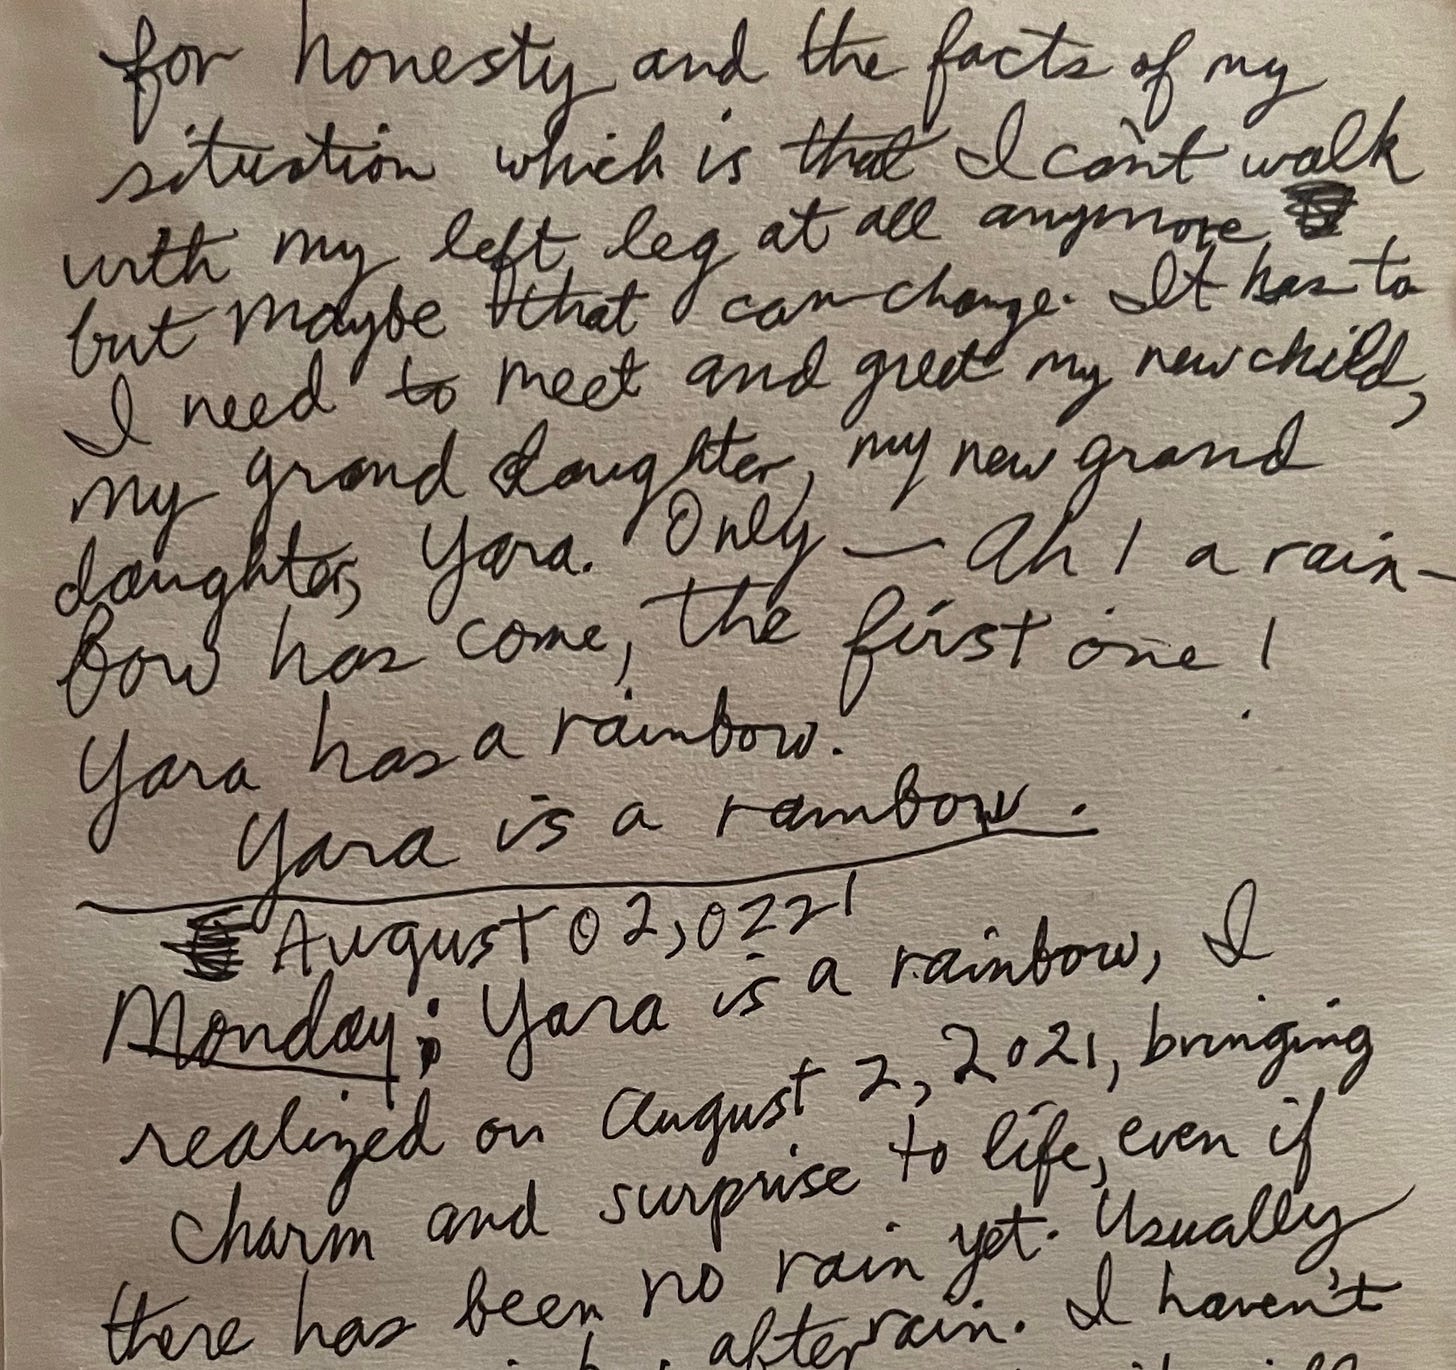 for honesty and the facts of my
situation which is that I can't walk
with my left leg at all anymore
but maybe that can change. It has to
I need to meet and greet my new child,
my grand daughter, my new grand
daughter, Yara. Only — Ah! a rain-
bow has come, the first one!
Yara has a rainbow.
Yara is a rainbow.
August 02, 0221
Monday; Yara is a rainbow, I
realized on August 2, 2021, bringing
charm and surprise to life, even if
there has been no rain yet. Usually
after rain. I haven't